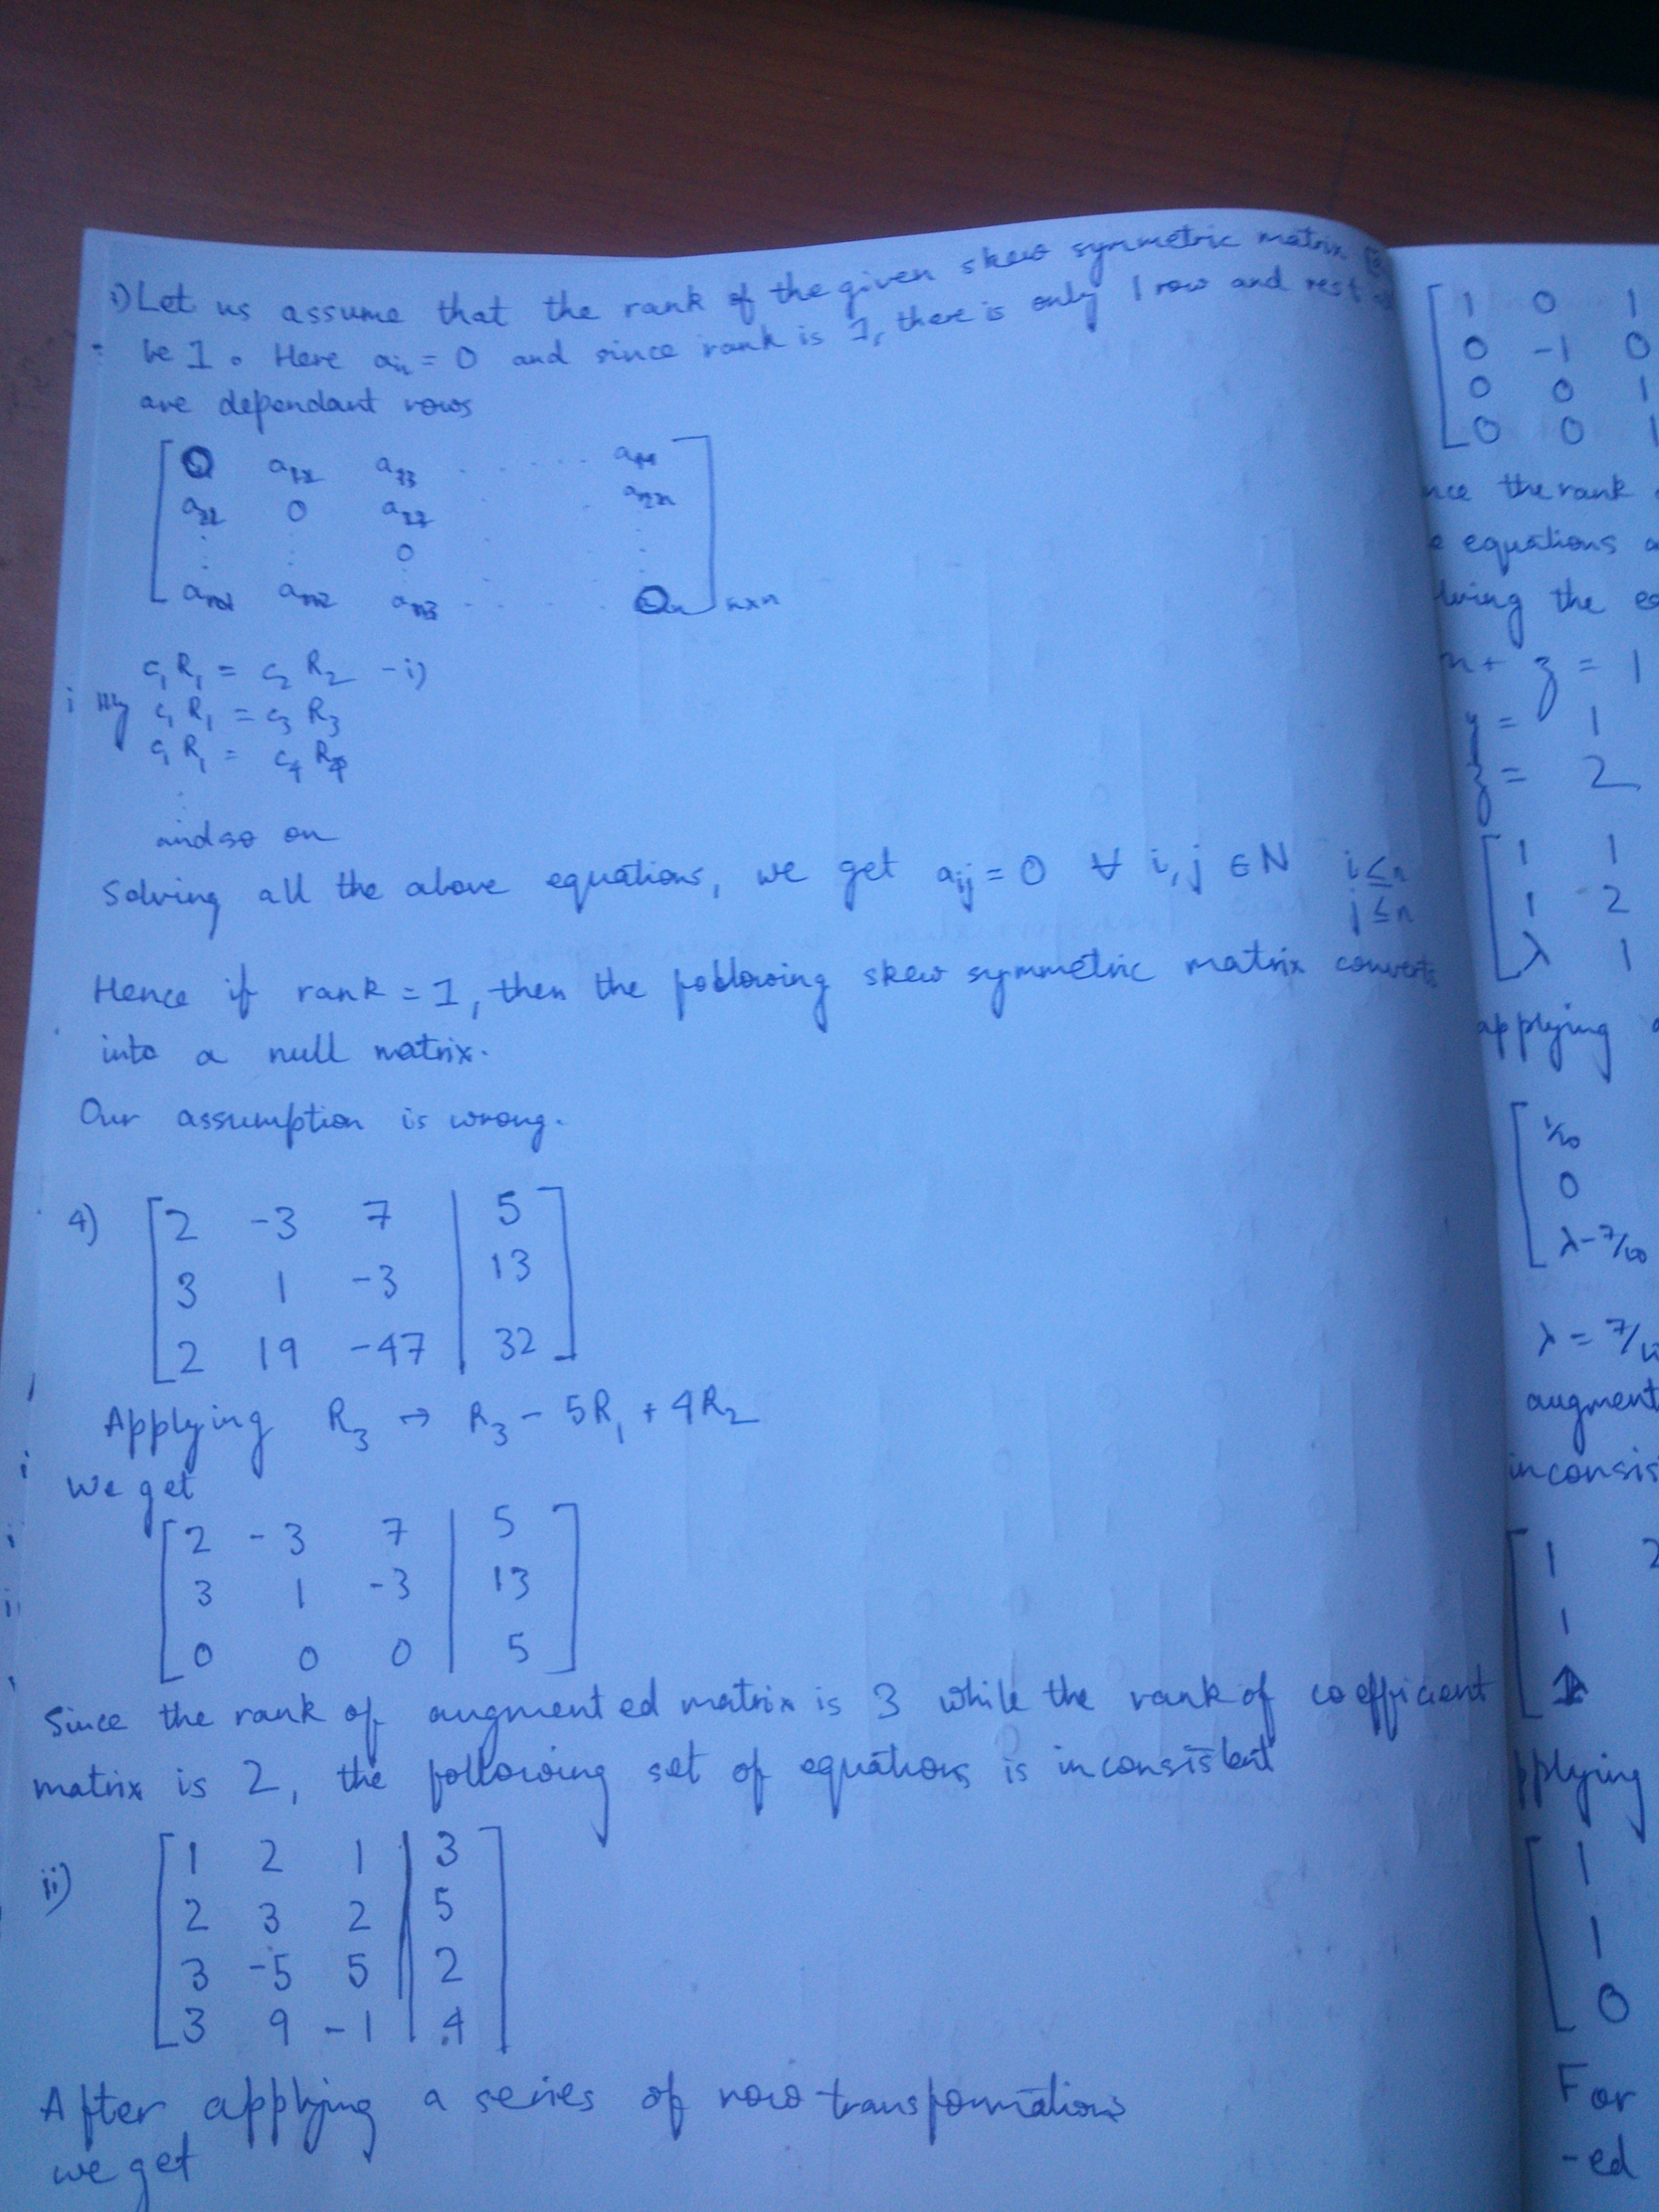 i) Let us assume that the rank of the given skew symmetric matrix
be 1. Here aii = 0 and since rank is 1, there is only 1 row and rest
are dependant rows
0 a12 a13 ......
a21 0 a23 . a2n
: : 0 . :
an1 an2 an3 ...... 0 n×n
c1 R1 = c2 R2 - i)
llly c1 R1 = c3 R3
c1 R1 = c4 R4
:
and so on
Solving all the above equations, we get aij = 0 ∀ i, j ∈ N i ≤ n
j ≤ n
Hence if rank = 1, then the following skew symmetric matrix converts
into a null matrix.
Our assumption is wrong.
4) [ 2 -3 7 | 5 ]
[ 3 1 -3 | 13 ]
[ 2 19 -47 | 32 ]
Applying R3 → R3 - 5R1 + 4R2
We get
[ 2 -3 7 | 5 ]
[ 3 1 -3 | 13 ]
[ 0 0 0 | 5 ]
Since the rank of augmented matrix is 3 while the rank of coefficient
matrix is 2, the following set of equations is inconsistent
ii) [ 1 2 1 | 3 ]
[ 2 3 2 | 5 ]
[ 3 -5 5 | 2 ]
[ 3 9 -1 | 4 ]
After applying a series of row transformations
we get
1 0 1
0 -1 0
0 0 1
0 0 1
the rank
equations
the
+ z = 1
y = 1
z = 2
1 1
1 2
λ 1
applying
1/10
0
λ - 7/10
λ = 7/10
augment
inconsis
1 2
1
1
1
1
0
For
-ed